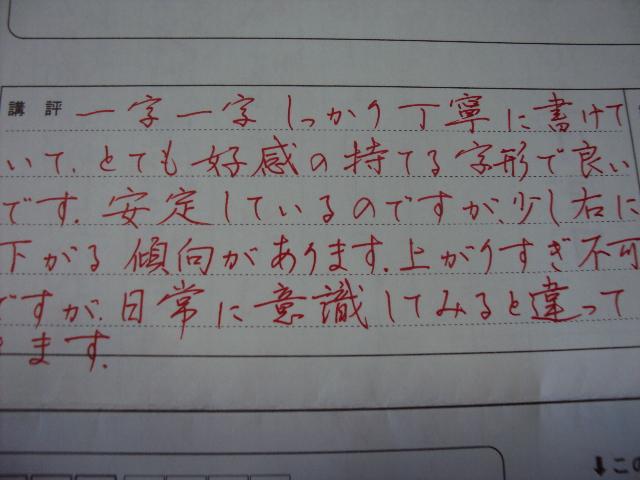 講評 一字一字しっかり丁寧に書けて
いて、とても好感の持てる字形で良い
です。安定しているのですが、少し右に
下がる傾向があります。上がりすぎ不可
ですが、日常に意識してみると違って
きます。
⬇この